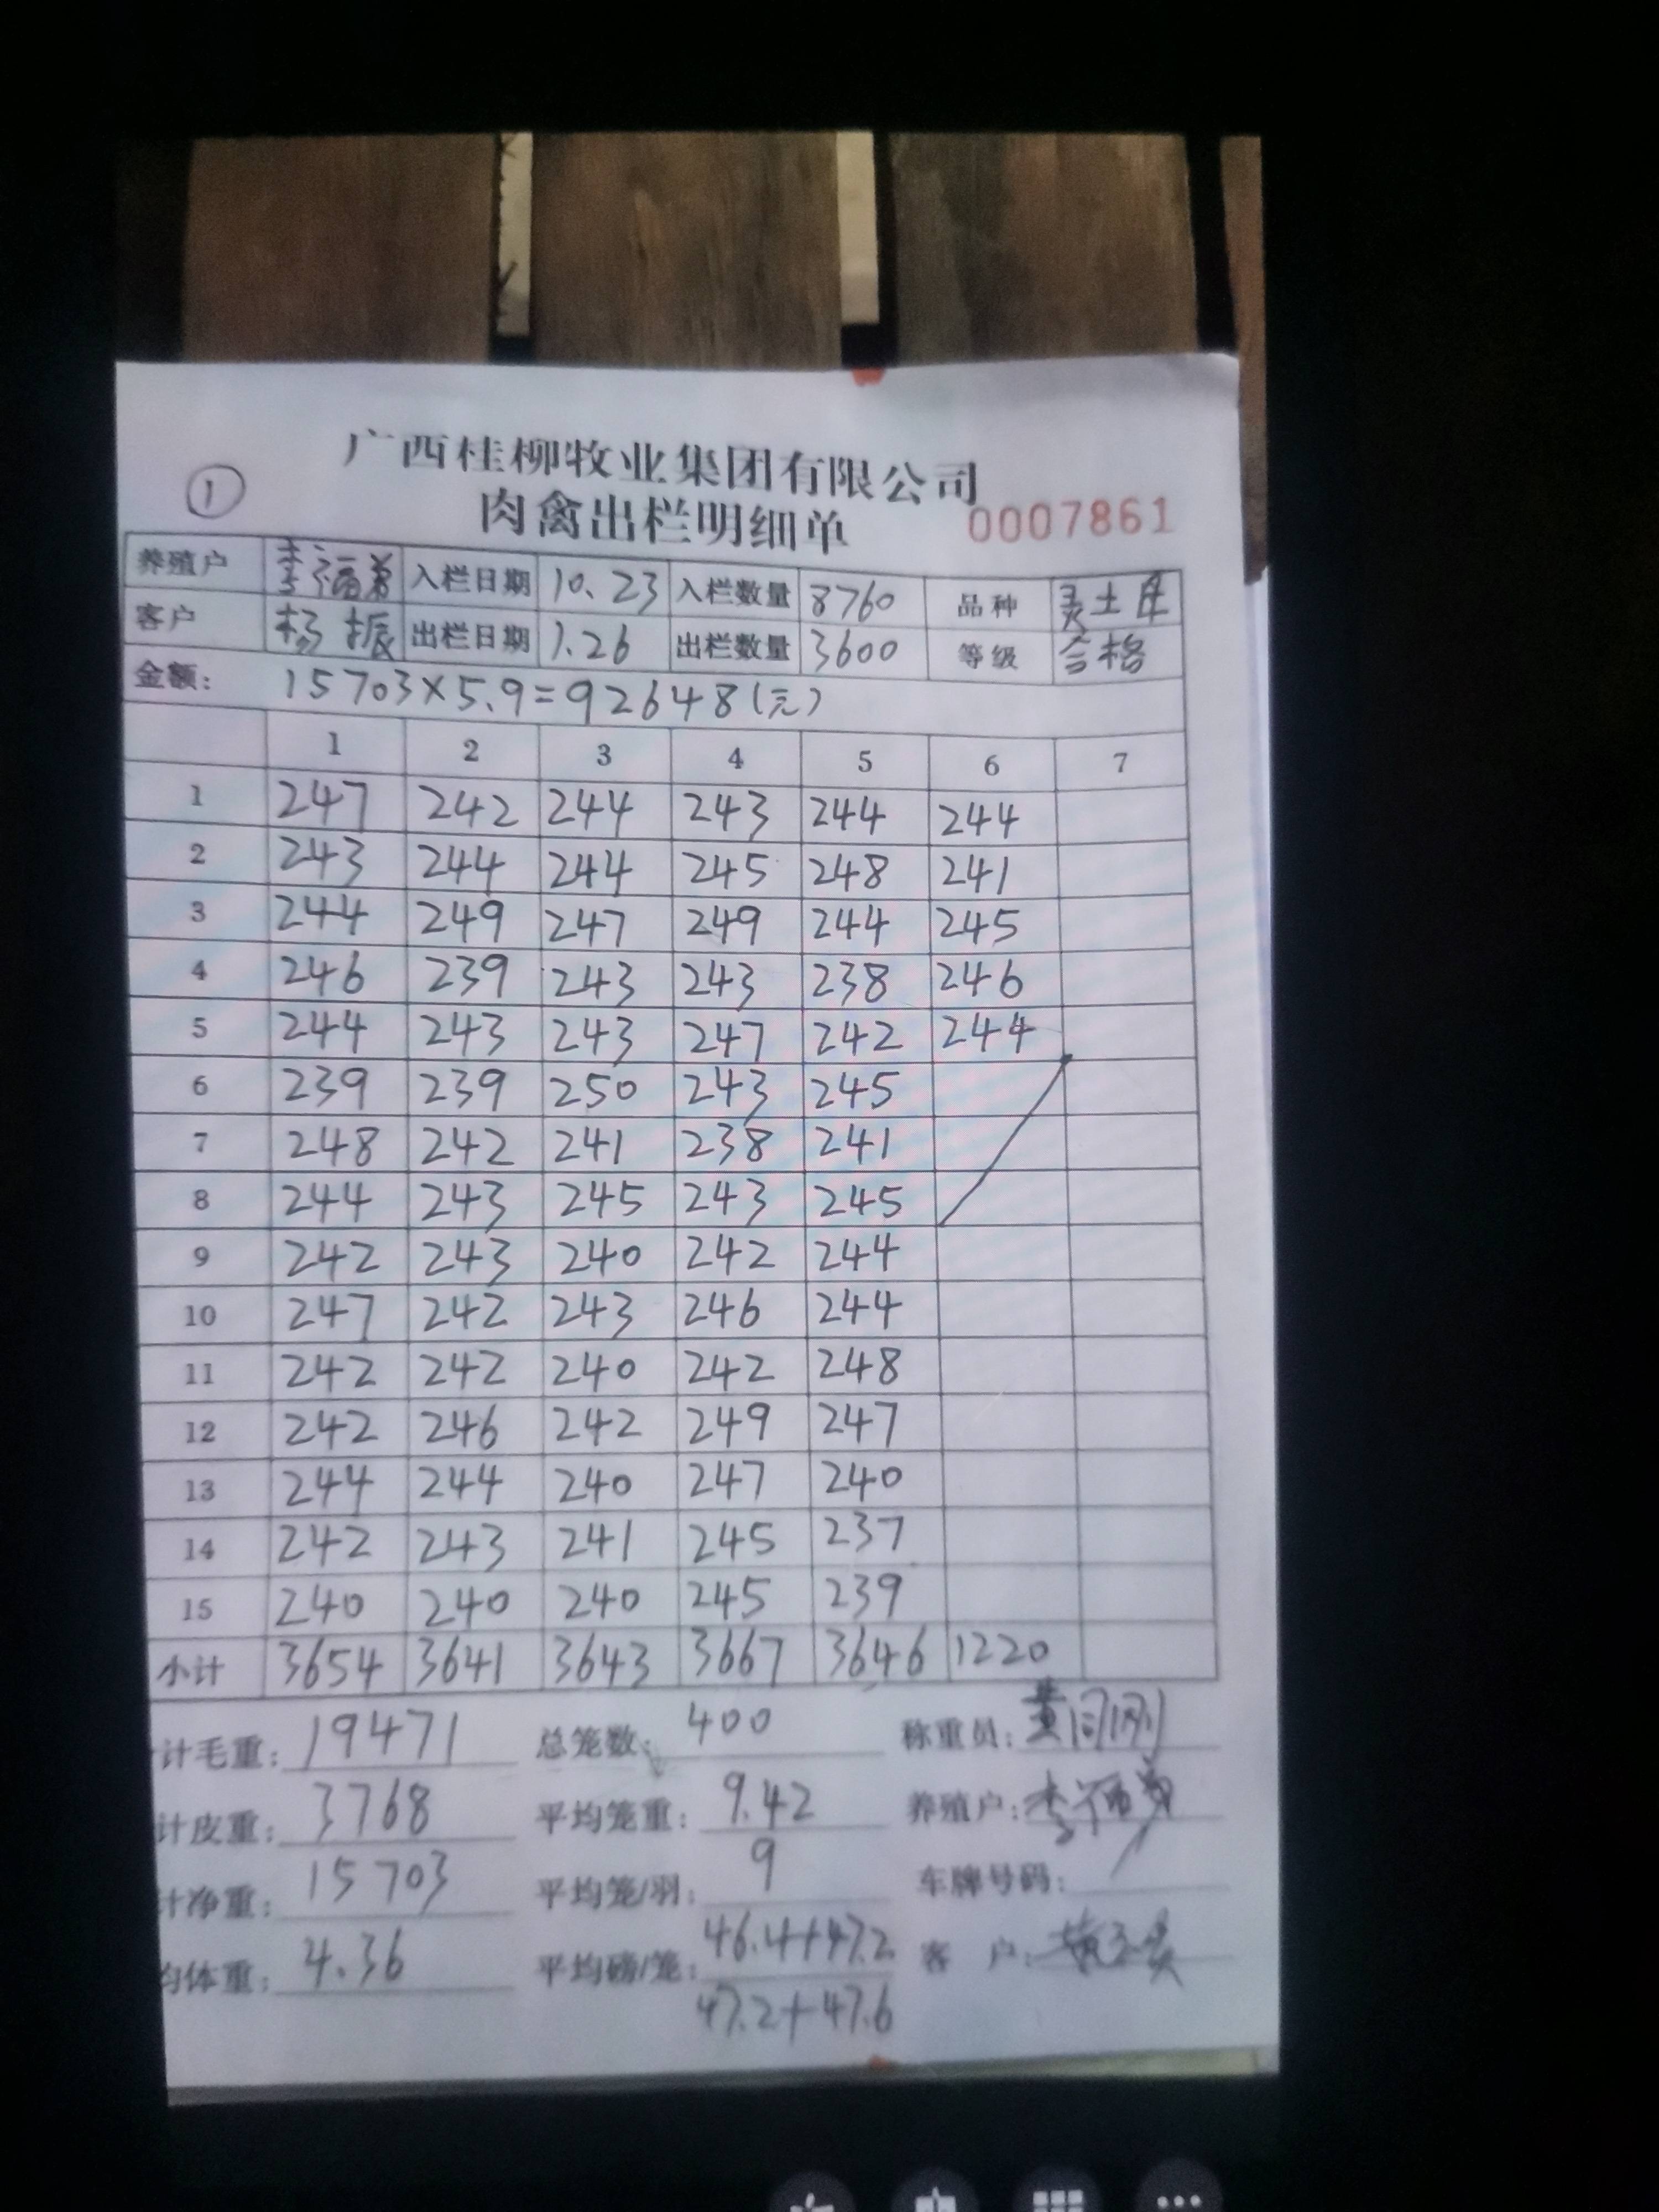 广西桂柳牧业集团有限公司
①
肉禽出栏明细单 0007861
养殖户 李福弟 入栏日期 10.23 入栏数量 8760 品种 灵土母
客户 杨振 出栏日期 1.26 出栏数量 3600 等级 合格
金额: 15703×5.9=92648(元)
1 2 3 4 5 6 7
1 247 242 244 243 244 244
2 243 244 244 245 248 241
3 244 249 247 249 244 245
4 246 239 243 243 238 246
5 244 243 243 247 242 244
6 239 239 250 243 245
7 248 242 241 238 241
8 244 243 245 243 245
9 242 243 240 242 244
10 247 242 243 246 244
11 242 242 240 242 248
12 242 246 242 249 247
13 244 244 240 247 240
14 242 243 241 245 237
15 240 240 240 245 239
小计 3654 3641 3643 3667 3646 1220
计毛重: 19471 总笼数: 400 称重员:
计皮重: 3768 平均笼重: 9.42 养殖户: 李福弟
计净重: 15703 平均笼/羽: 9 车牌号码: /
均体重: 4.36 平均磅/笼: 46.4+47.2 客 户:
47.2+47.6